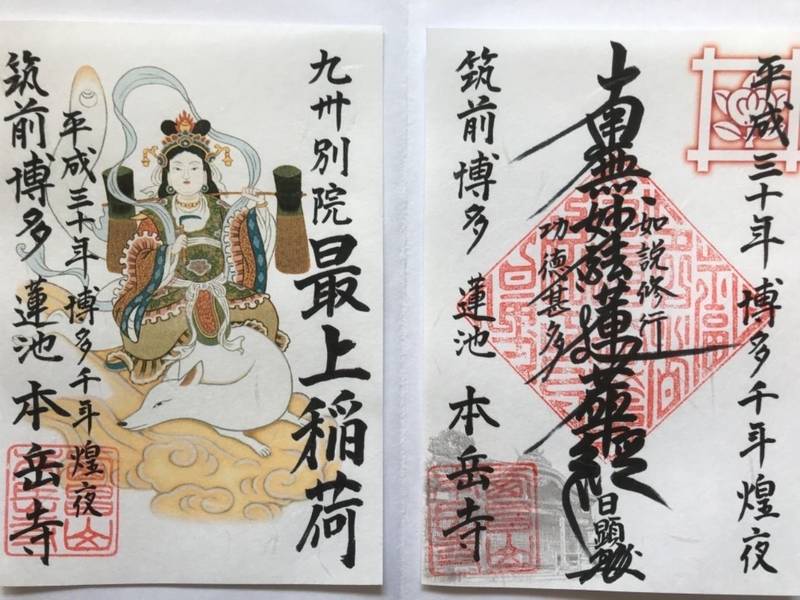 九州別院 最上稲荷
平成三十年 博多千年煌夜
筑前博多 蓮池 本岳寺
平成三十年 博多千年煌夜
如説修行
南無妙法蓮華経
日顕
功徳甚多
筑前博多 蓮池 本岳寺